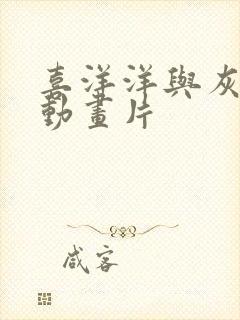 喜洋洋與灰
動畫片
咸客